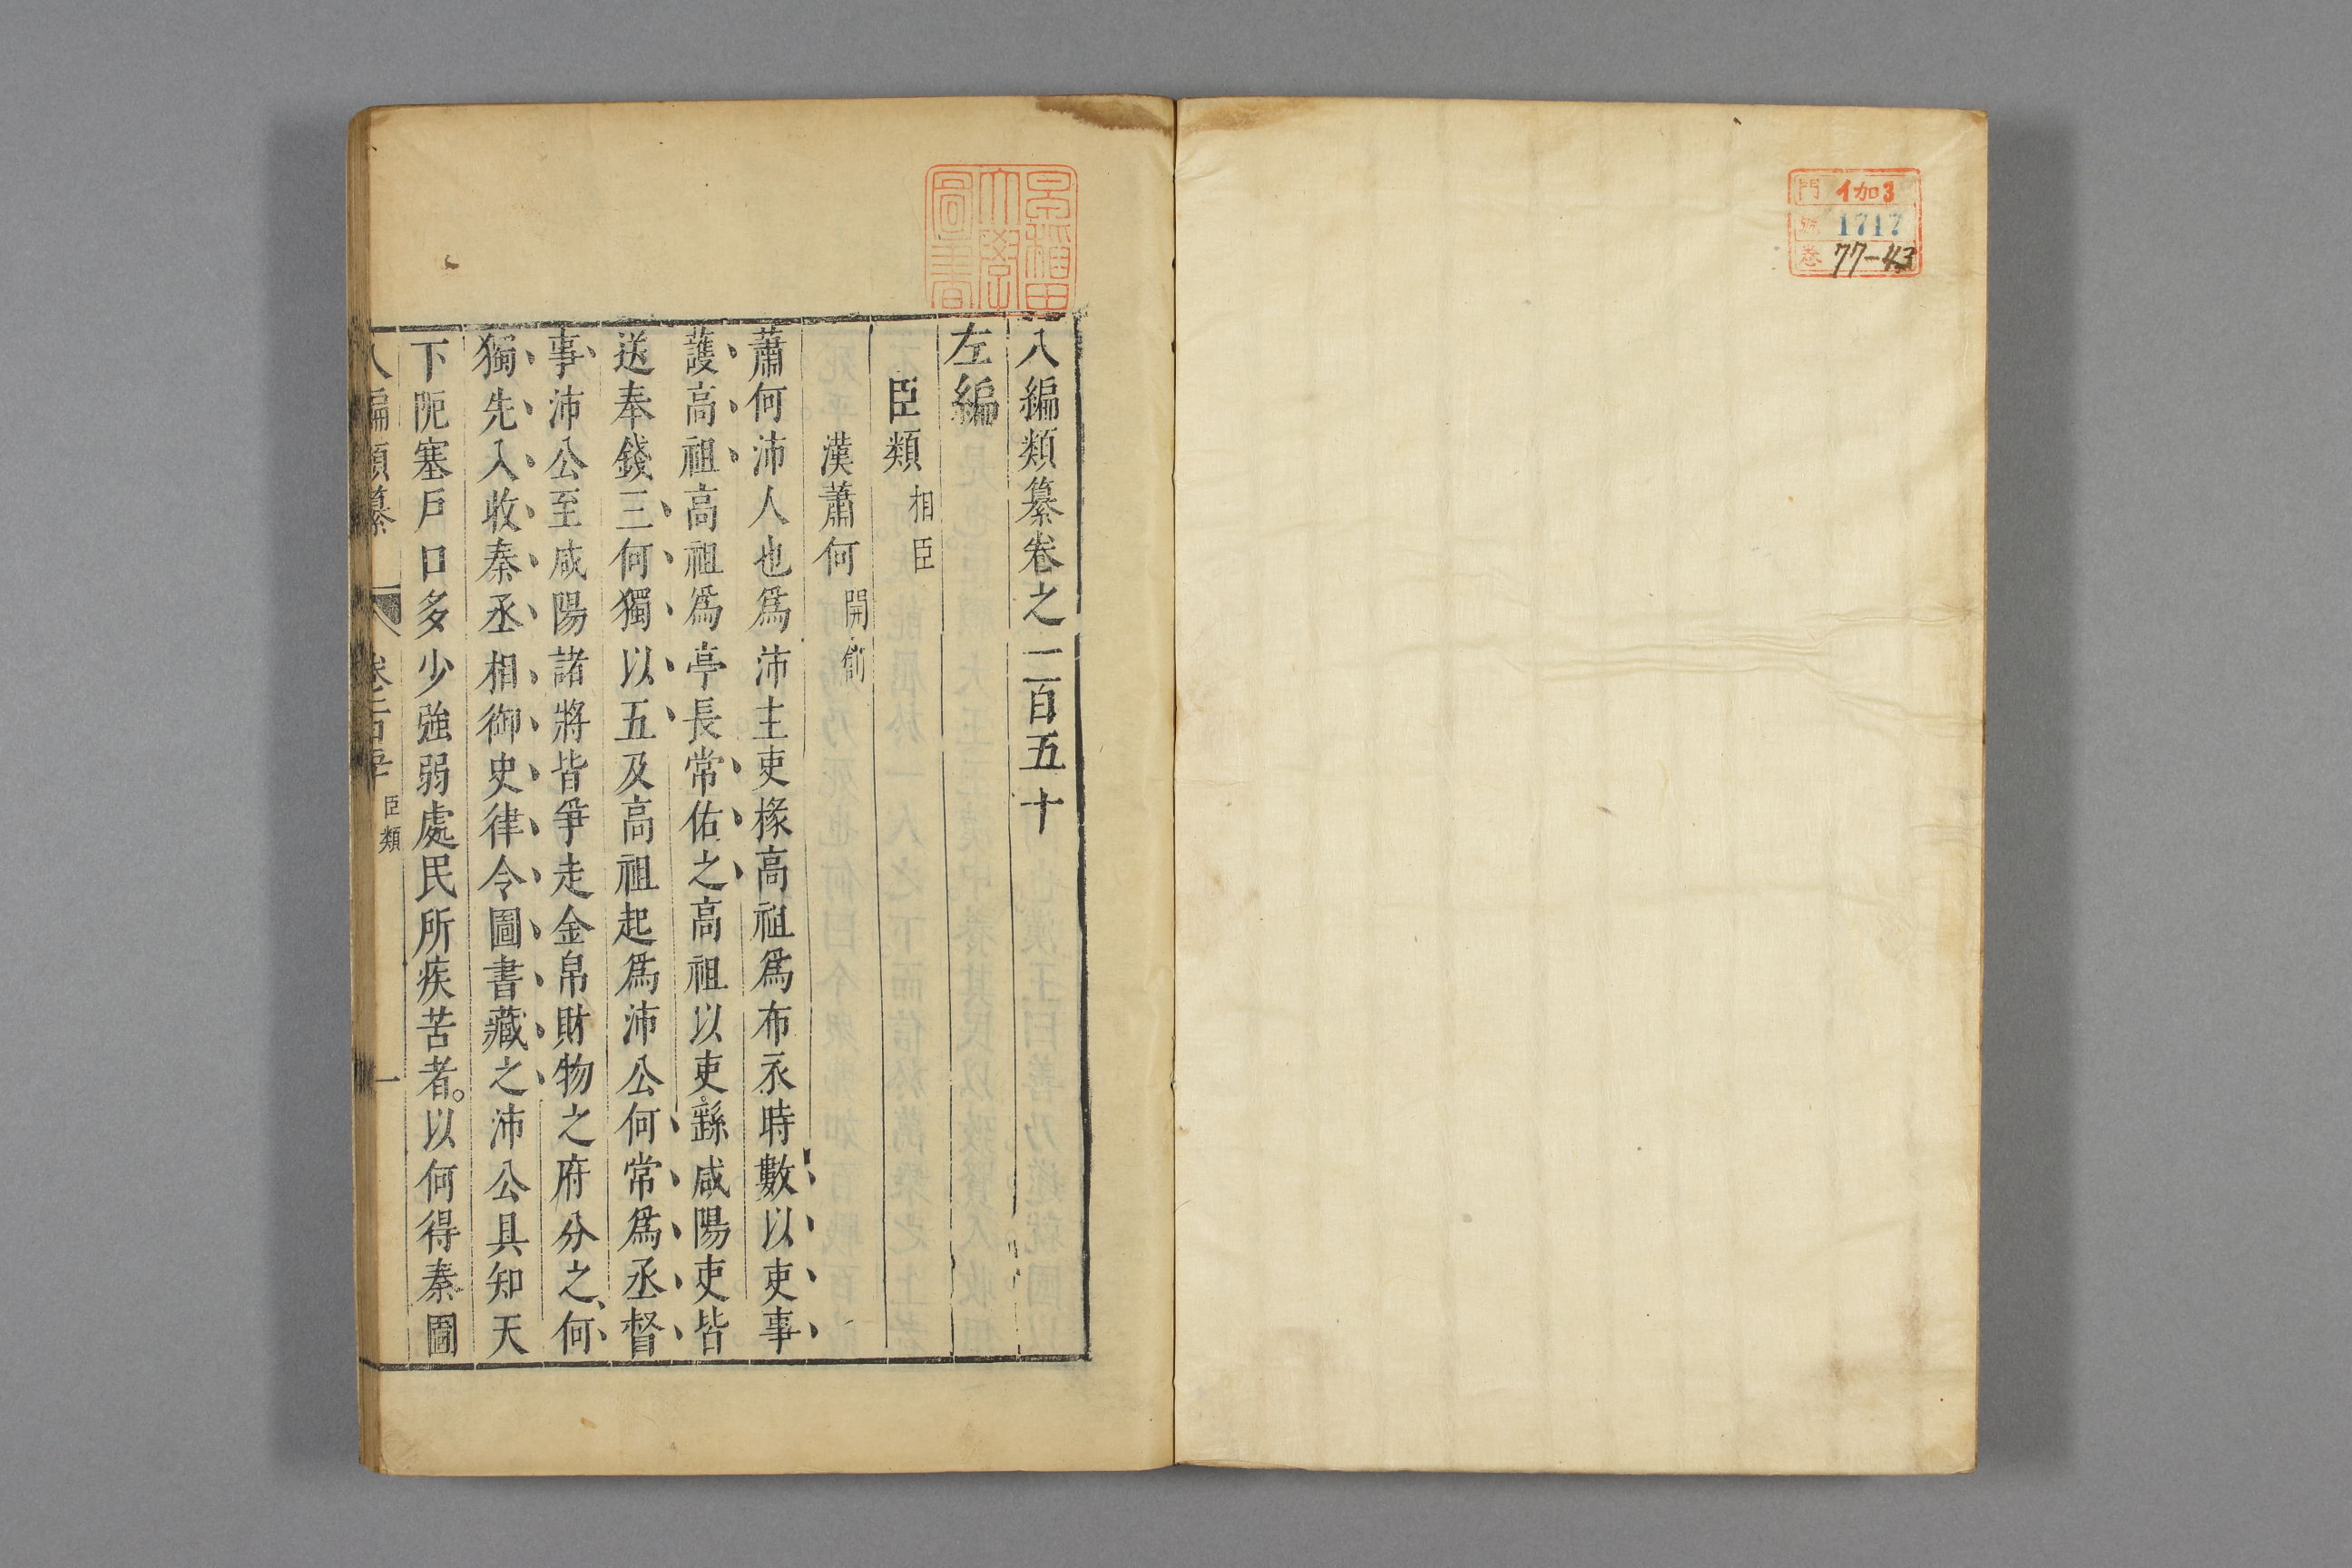 門 イ加3
號 1717
卷 77-43
早稲田
大學
圖書
八編類纂卷之二百五十
左編
臣類 相臣
漢蕭何 開創
蕭何沛人也爲沛主吏掾高祖爲布衣時數以吏事
護高祖高祖爲亭長常佑之高祖以吏繇咸陽吏皆
送奉錢三何獨以五及高祖起爲沛公何常爲丞督
事沛公至咸陽諸將皆爭走金帛財物之府分之何
獨先入收秦丞相御史律令圖書藏之沛公具知天
下阨塞戶口多少強弱處民所疾苦者。以何得秦圖
八編類纂 卷二百五十 臣類 一